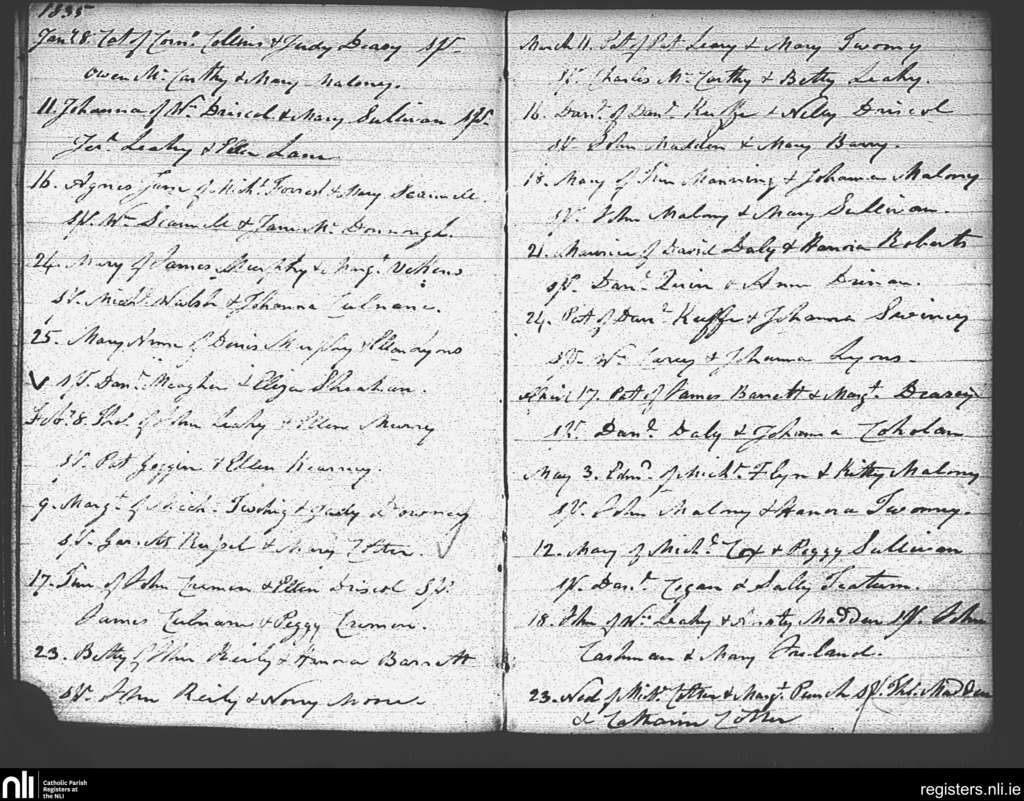 1835
Jany 8. Cat of Corns. Collins & Judy Deasy SP.
Owen Mc. Carthy & Mary Maloney.
11. Johanna of Wm. Driscol & Mary Sullivan SP.
Jer. Leahy & Ellen Lane
16. Agnes Jane of Michl. Forrest & Mary
SP. Wm. & Jane Mc. Donnough.
24. Mary of James Murphy & Margt.
SP. Michl. Walsh & Johanna Culnane.
25. Mary Anne of Denis Murphy & Ellen Lyons
SP. Danl. Meagher & Eliza Sheehan.
Feby. 8. Thos. of John Leahy & Ellen Murray
SP. Pat Goggin & Ellen Kearney.
9. Margt. of Mich. Twohig & Judy Downey
SP. Garrett & Mary Cotter.
17. Tim of John Cremen & Ellen Driscol SP.
James Culnane & Peggy Cremen.
23. Betty of John Reily & Hanora Barrett
SP. John Reily & Norry
March 11. Pat of Pat Leary & Mary Twomy
SP. Charles Mc. Carthy & Betty Leahy.
16. Danl. of Danl. Keeffe & Nelly Driscol
SP. John Madden & Mary Barry.
18. Mary of Tim Manning & Johanna Malony
SP. John Malony & Mary Sullivan.
21. Maurice of David Daly & Hanora Roberts
SP. Danl. Quin & Ann Drinan.
24. Pat of Danl. Keeffe & Johanna Swiney
SP. Wm. Carey & Johanna Lyons.
April 17. Pat of James Barrett & Margt.
SP. Danl. Daly & Johanna Coholan
May 3. Edmd. of Michl. Flyn & Kitty Malony
SP. John Malony & Hanora Twomy.
12. Mary of Michl. Cox & Peggy Sullivan
SP. Danl. Cogan & Sally
18. John of Wm. Leahy & Madden SP. John
Cashman & Mary
23. Ned of Cotter & Margt. Punch SP. Thos. Madden
& Catharine Cotter
nli
Catholic Parish
Registers at
the NLI
registers.nli.ie